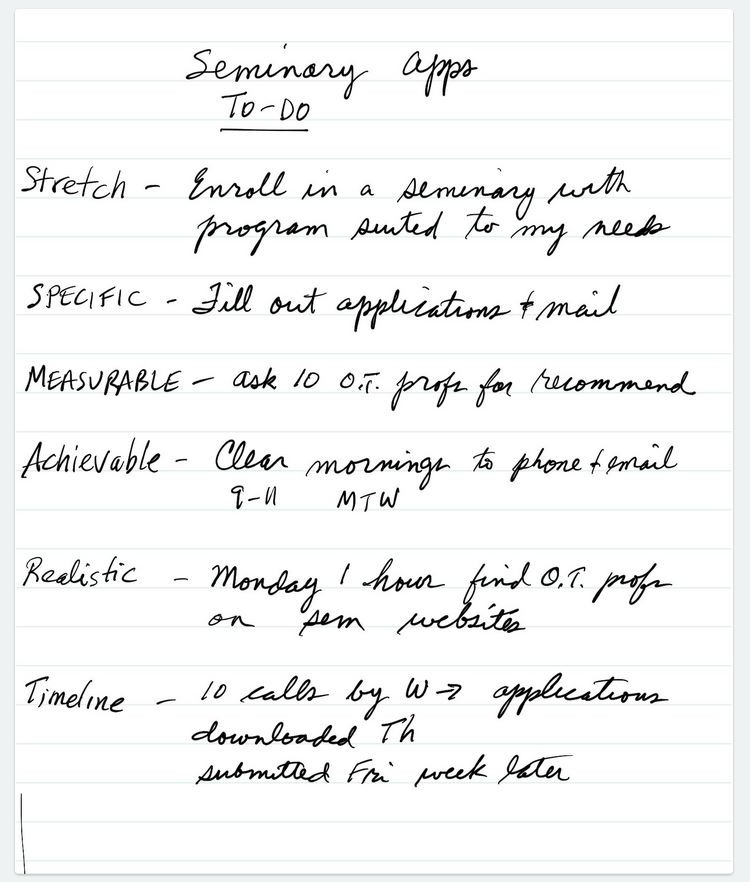 Seminary apps
TO-DO
Stretch - Enroll in a seminary with
program suited to my needs
SPECIFIC - Fill out applications + mail
MEASURABLE - ask 10 O.T. profs for recommend
Achievable - Clear mornings to phone + email
9-11 MTW
Realistic - Monday 1 hour find O.T. profs
on sem websites
Timeline - 10 calls by W → applications
downloaded Th
submitted Fri week later